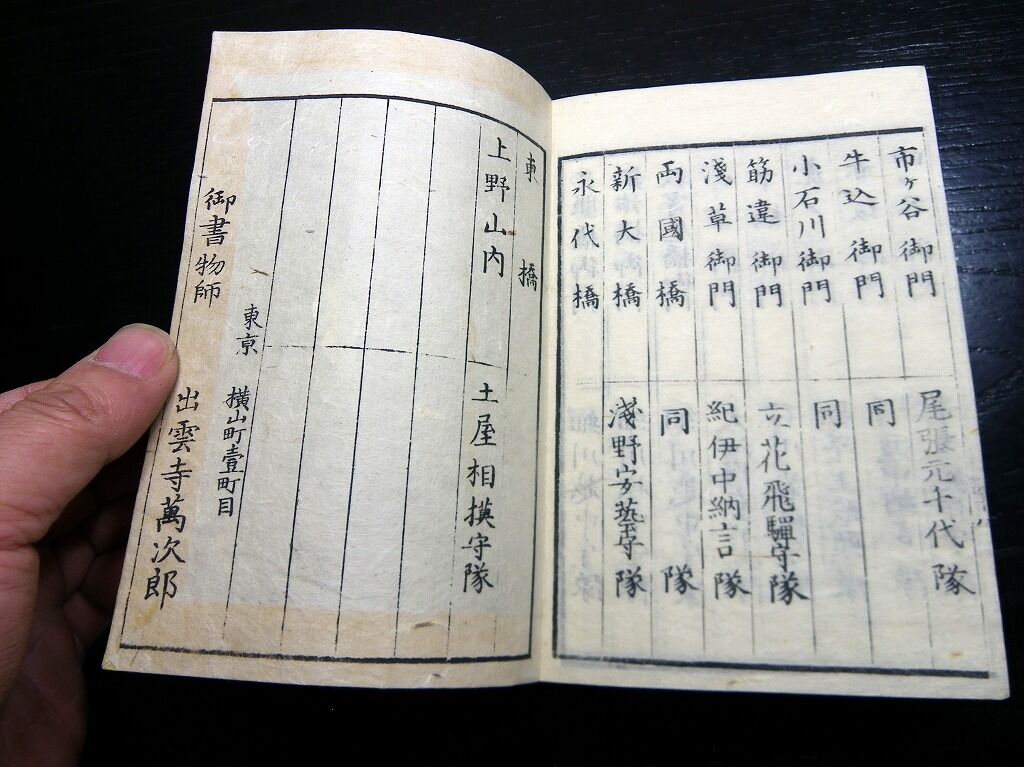 市ヶ谷御門 尾張元千代隊
牛込御門 同
小石川御門 同
筋違御門 立花飛驒守隊
淺草御門 紀伊中納言隊
両國橋 同隊
新大橋 淺野安藝守隊
永代橋
東橋
上野山内 土屋相摸守隊
東京 横山町壹町目
御書物師 出雲寺萬次郎